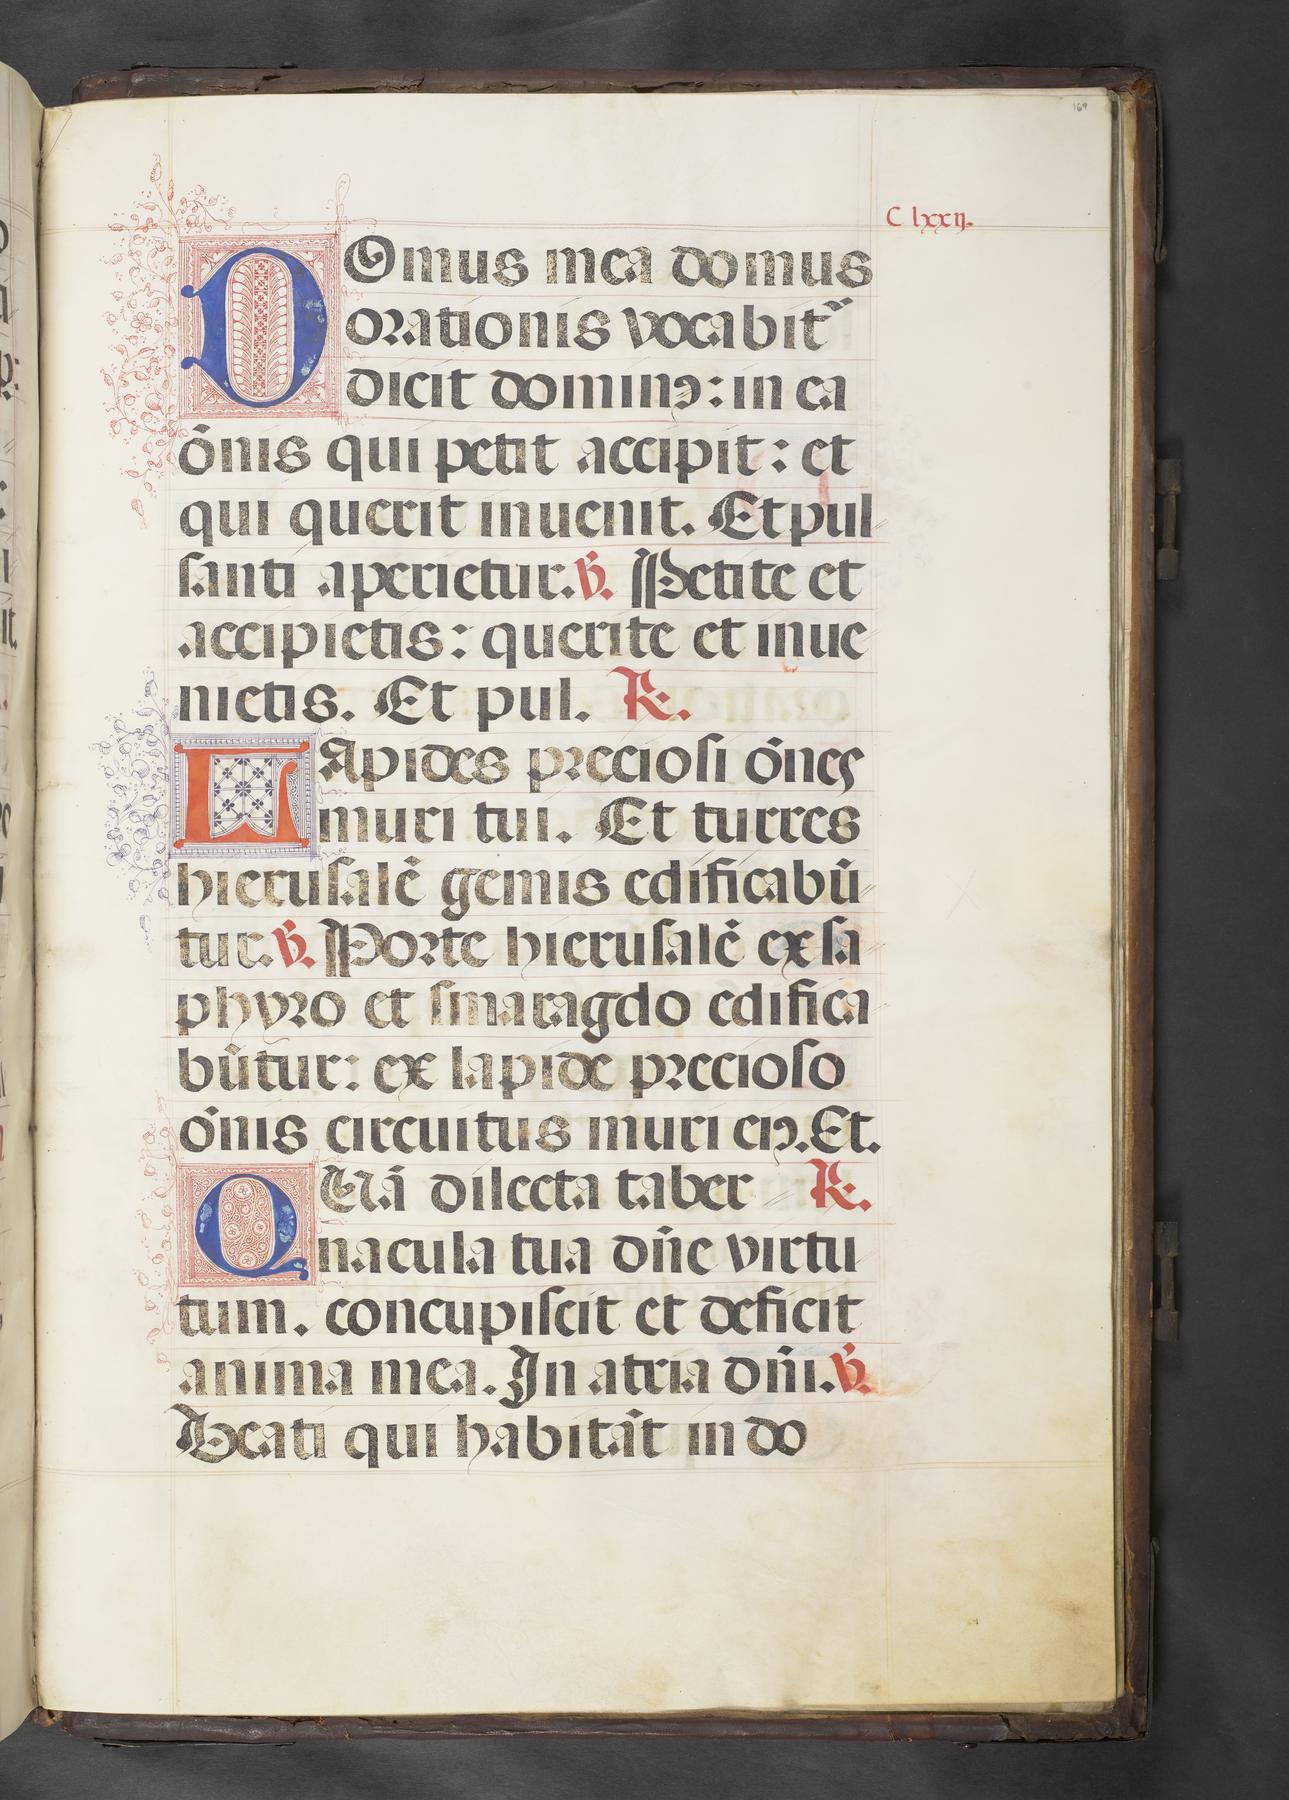 169
C lxxij.
DOmus mea domus
orationis vocabit᷑
dicit dominꝰ: in ea
o᷑nis qui petit accipit: et
qui querit inuenit. Et pul
santi aperietur. ℣. Petite et
accipietis: querite et inue
nietis. Et pul. ℟.
LApides preciosi o᷑nes
muri tui. Et turres
hierusalē gemis edificabū
tur. ℣. Porte hierusalē ex sa
phyro et smaragdo edifica
būtur: ex lapide precioso
o᷑nis circuitus muri eiꝰ. Et.
QUā dilecta taber ℟.
nacula tua dn̄e virtu
tum. concupiscit et deficit
anima mea. In atria dn̄i. ℣.
Beati qui habitāt in do